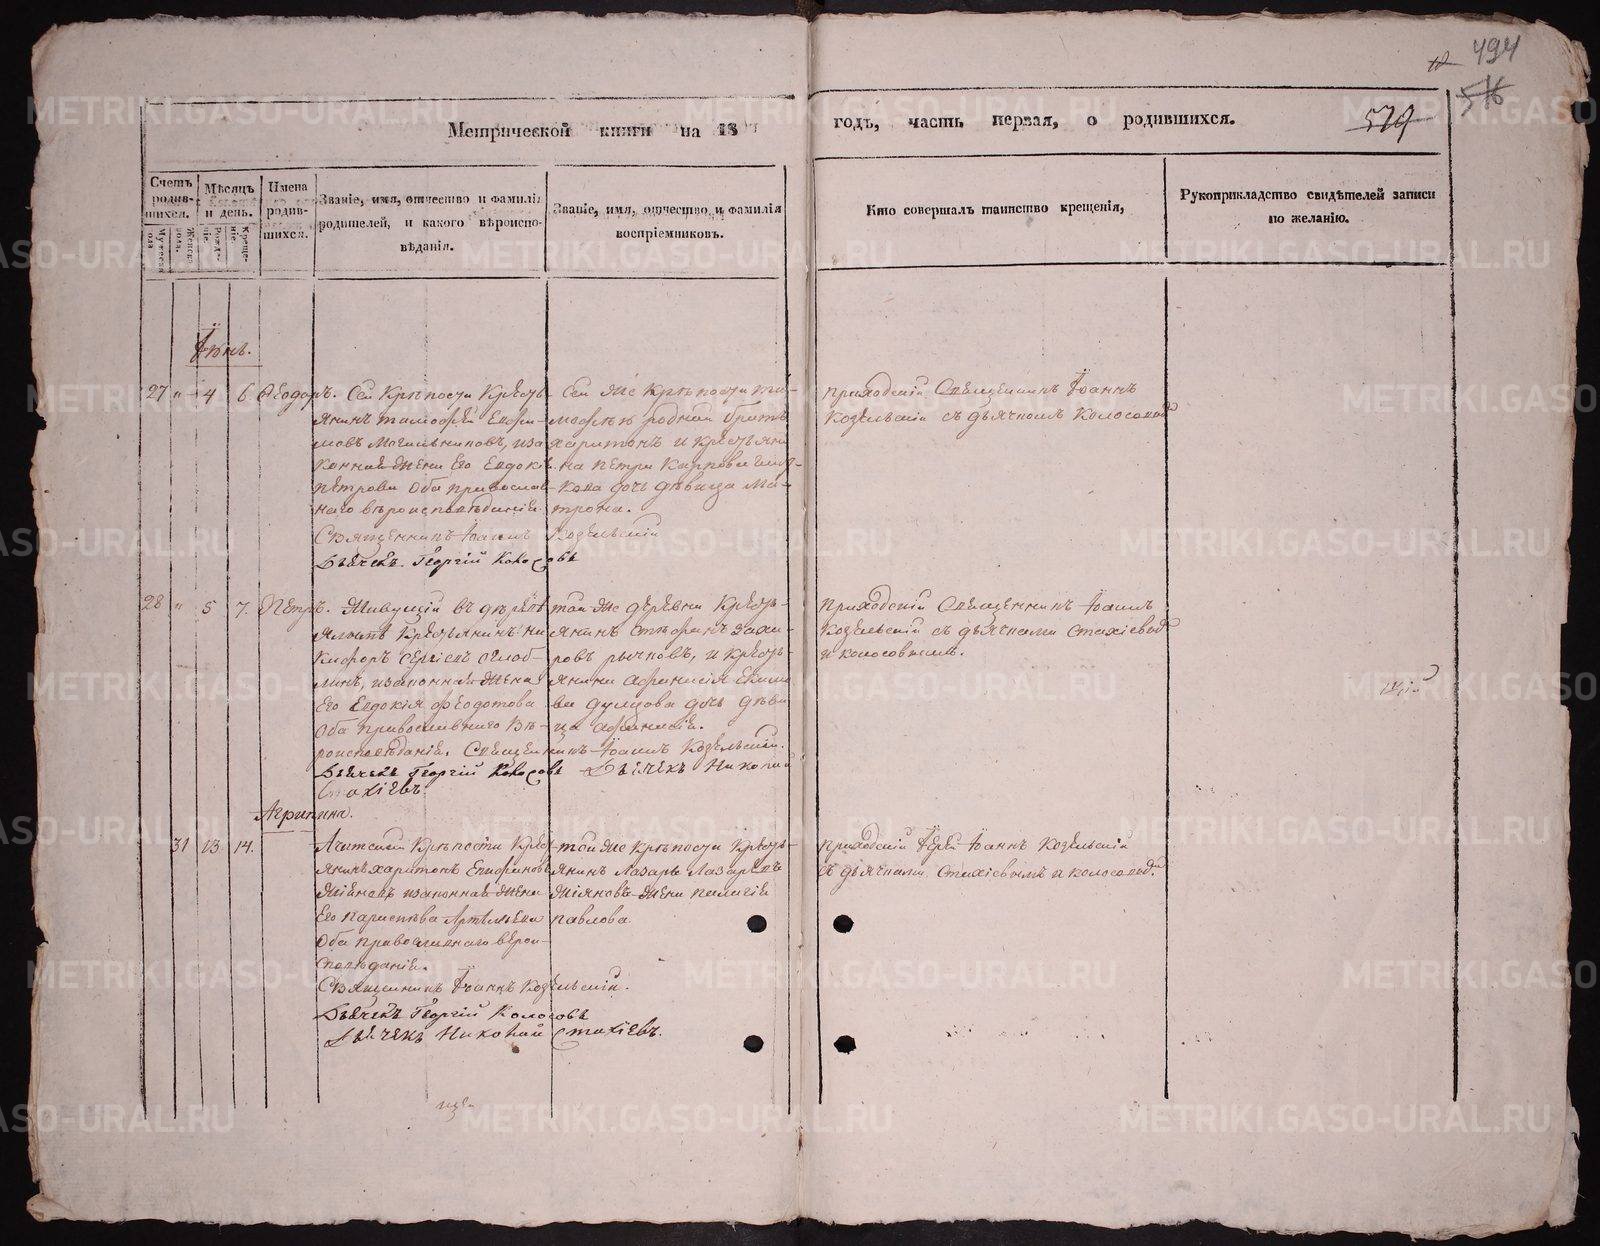 494
576
579
Метрической книги на 18
годъ, часть первая, о родившихся.
Счетъ родившихся.
Мужеска пола
Женска пола.
Мѣсяцъ и день.
Рожденіе.
Крещеніе.
Имена родившихся.
Званіе, имя, отчество и фамилія
родителей, и какого вѣроиспо-
вѣданія.
Званіе, имя, отчество, и фамилія
воспріемниковъ.
Кто совершалъ таинство крещенія,
Рукоприкладство свидѣтелей записи
по желанію.
Іюнь.
27 " 4 6 Ѳеодоръ.
Сей Крѣпости Кресть-
янинъ Тимофей Ефи-
мовъ изъ за
конная жена его Евдокія
Петрова оба православ-
наго вѣроисповѣданія.
Священникъ Іоаннъ Козельскій
Дьячекъ Георгій Колосовъ
Сей же Крѣпости Ти-
мофея родной братъ
Харитонъ и крестьяни
на Петра Карпова
дочь дѣвица Ма-
трона.
приходскій Священникъ Іоаннъ
Козельскій съ дьячкомъ Колосовымъ
28 " 5 7. Петръ.
Живущій въ деревнѣ
крестьянинъ Ни
кифоръ Сергѣевъ
законная жена
его Евдокія Федотова
оба православнаго вѣ-
роисповѣданія. Священникъ Іоаннъ Козельскій.
Дьячекъ Георгій Колосовъ Дьячекъ Николай
Стахіевъ
той же деревни кресть-
янинъ Стефанъ Заха-
ровъ Рычковъ, и кресть-
янина Афанасія
дочь дѣви
ца Афанасія.
приходскій Священникъ Іоаннъ
Козельскій съ дьячками Стахіевымъ
и Колосовымъ.
Агрипина.
31 13 14.
Крѣпости Крест
янинъ Харитонъ Епифановъ
законная жена
его Парасковья Артемьева
оба православнаго вѣрои-
сповѣданія.
Священникъ Іоаннъ Козельскій.
Дьячекъ Георгій Колосовъ
Дьячекъ Николай Стахіевъ.
той же Крѣпости Кресть-
янинъ Лазарь Лазаревъ
жена Пелагія
Павлова
приходскій Іерей Іоаннъ Козельскій
съ дьячками Стахіевымъ и Колосовымъ.
METRIKI.GASO-URAL.RU